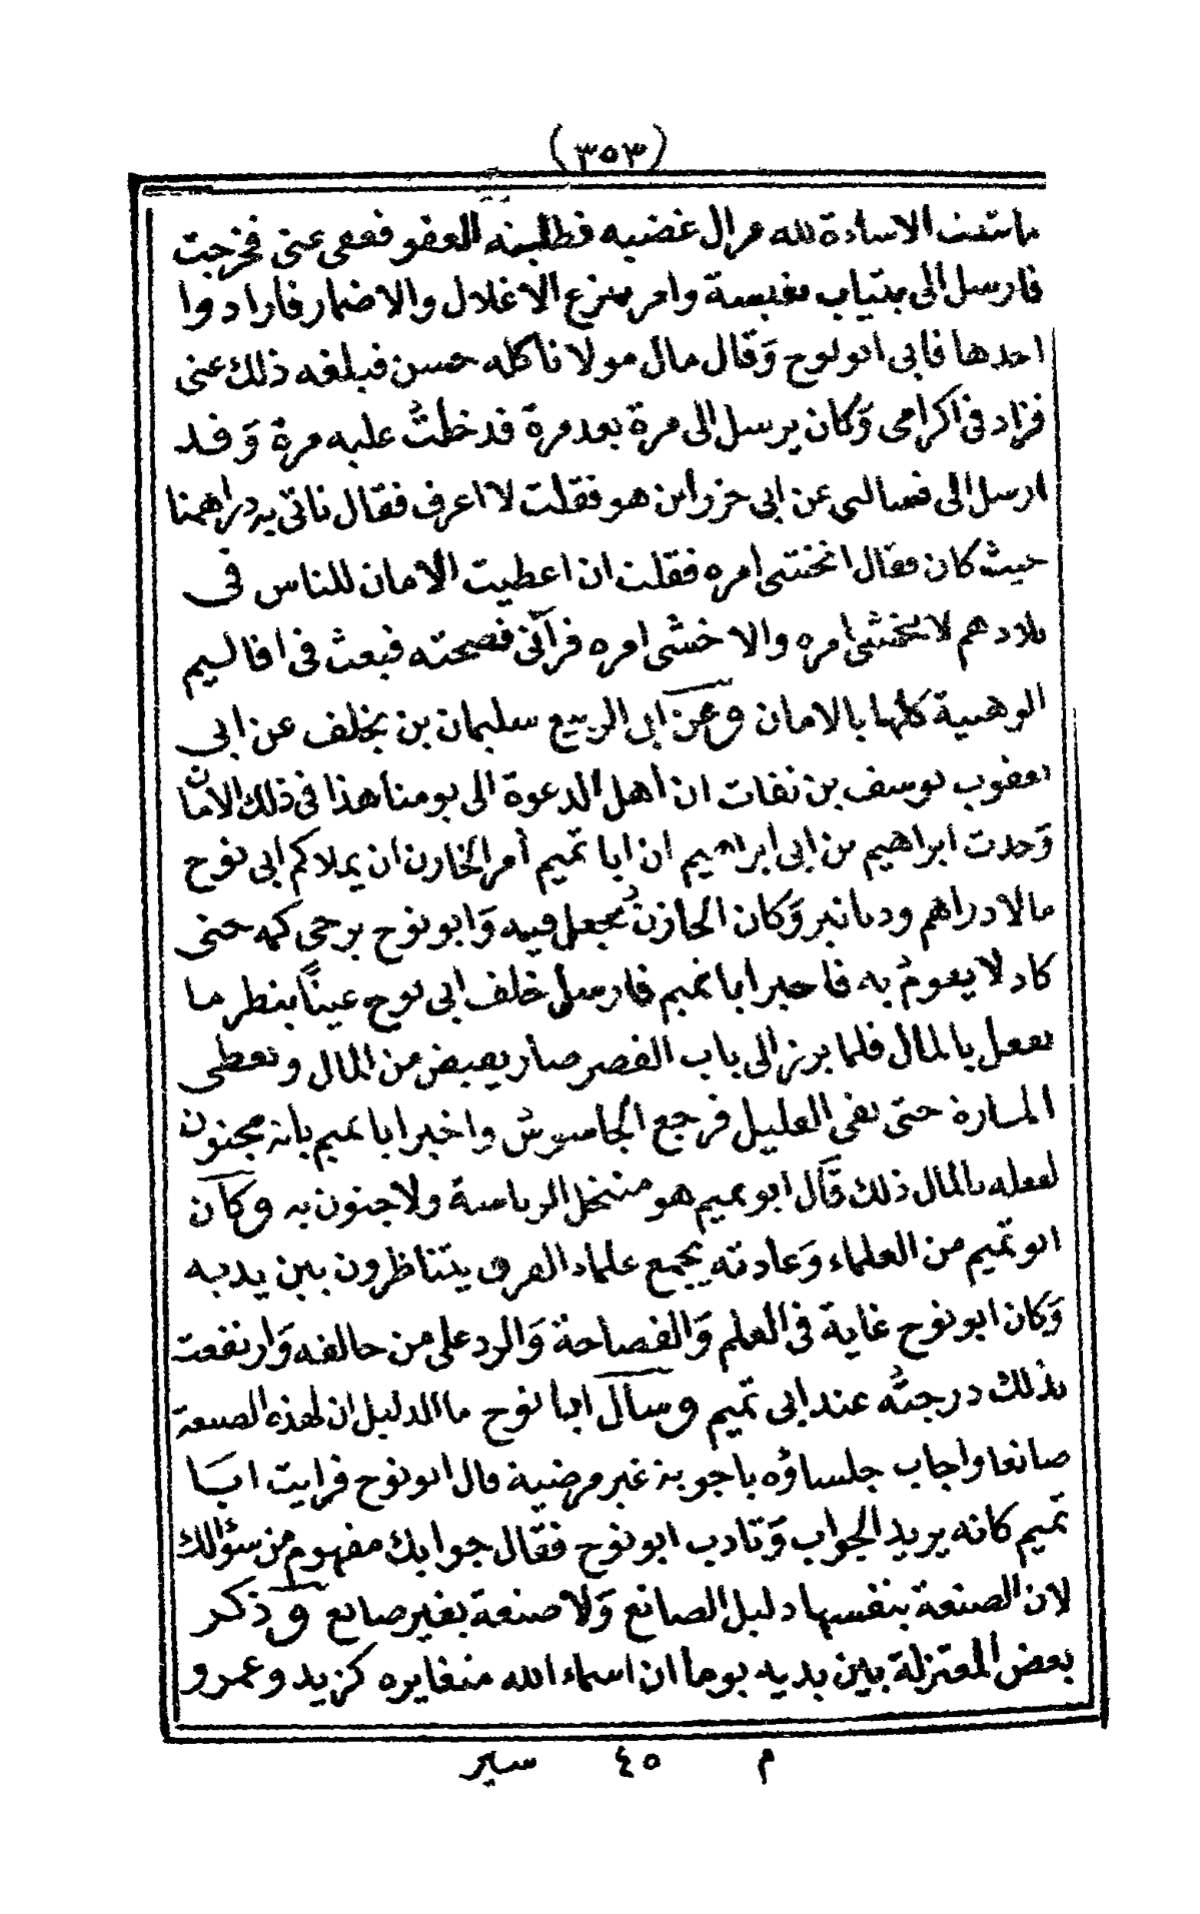 (٣٥٣)
ما شفت الاساءة لله مر ال غضبه فطلبته العفو فعفى عنى فخرجت
فارسل الى بثياب نفيسة وامر بنزع الاغلال والاضمار فارادوا
احدها فابى ابو نوح وقال مال مولانا كله حسن فبلغه ذلك عنى
فزاد فى اكرامى وكان يرسل الى مرة بعد مرة فدخلت عليه مرة وقد
ارسل الى فسالنى عن ابى خزر أين هو فقلت لا اعرف فقال ناتى به دراهمنا
حيث كان فقال اتخشى امره فقلت ان اعطيت الامان للناس فى
بلادهم لا تخشى امره والا خشى امره فرآنى نصحته فبعث فى اقاليم
الوهبية كلها بالامان وعن ابى الربيع سليمان بن يخلف عن ابى
يعقوب يوسف بن نفات ان أهل الدعوة الى يومنا هذا فى ذلك الامان
وحدث ابراهيم بن ابى ابراهيم ان ابا تميم أمر الخازن ان يملا كم ابى نوح
مالا دراهم ودنانير وكان الخازن يجعل فيه وابو نوح يرخى كمه حتى
كاد لا يقوم به فاخبر ابا تميم فارسل خلف ابى نوح عيناً ينظر ما
يفعل بالمال فلما برز الى باب القصر صار يقبض من المال ويعطى
المارة حتى بقى القليل فرجع الجاسوس واخبر ابا تميم بانه مجنون
لفعله بالمال ذلك قال ابو تميم هو منتحل الرياسة ولا جنون به وكان
ابو تميم من العلماء وعادته يجمع علماء الفرق يتناظرون بين يديه
وكان ابو نوح غاية فى العلم والفصاحة والرد على من خالفه وارتفعت
بذلك درجته عند ابى تميم وسال ابا نوح ما الدليل ان لهذه الصنعة
صانعا واجاب جلساؤه باجوبة غير مرضية قال ابو نوح فرايت ابا
تميم كانه يريد الجواب وتادب ابو نوح فقال جوابك مفهوم من سؤالك
لان الصنعة بنفسها دليل الصانع ولا صنعة بغير صانع وذكر
بعض المعتزلة بين يديه يوما ان اسماء الله متغايره كزيد وعمرو
م ٤٥ سير